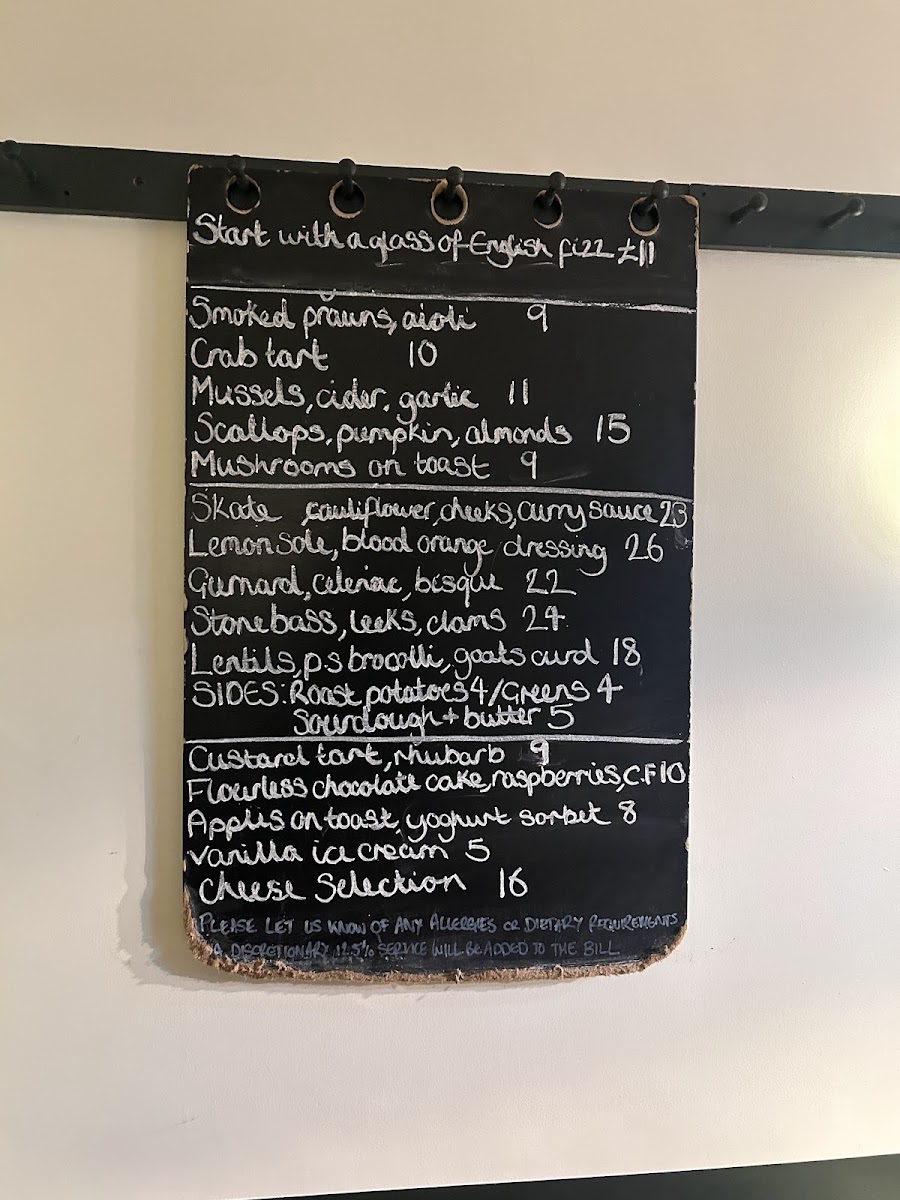 Start with a glass of English fizz £11
Smoked prawns, aioli 9
Crab tart 10
Mussels, cider, garlic 11
Scallops, pumpkin, almonds 15
Mushrooms on toast 9
Skate cauliflower, cheeks, curry sauce 23
Lemon sole, blood orange dressing 26
Gurnard, celeriac, bisque 22
Stonebass, leeks, clams 24
Lentils, p.s brocolli, goats curd 18
SIDES: Roast potatoes 4 / Greens 4
Sourdough + butter 5
Custard tart, rhubarb 9
Flourless chocolate cake, raspberries, C.F 10
Apples on toast, yoghurt sorbet 8
Vanilla ice cream 5
Cheese Selection 16
PLEASE LET US KNOW OF ANY ALLERGIES OR DIETARY REQUIREMENTS
A DISCRETIONARY 12.5% SERVICE WILL BE ADDED TO THE BILL